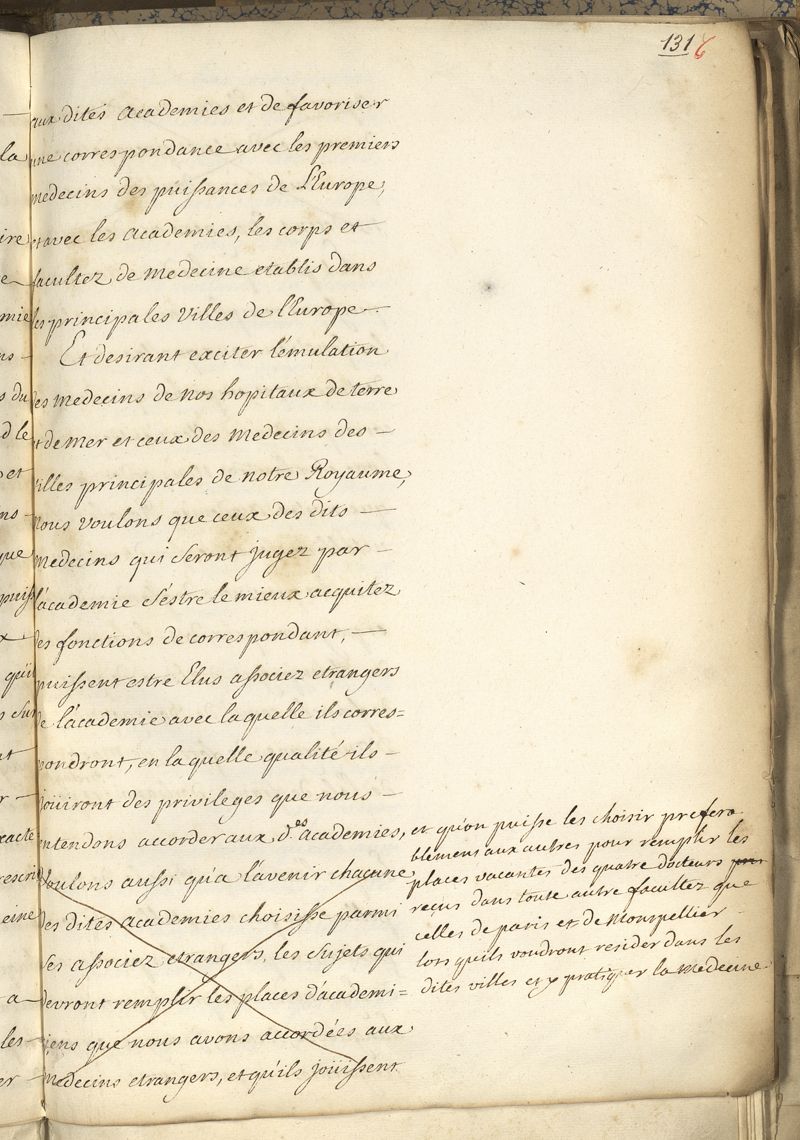 1316
aux dites academies et de favoriser
une correspondance avec les premiers
medecins des puissances de L'Europe,
et avec les academies, les corps et
facultez de medecine etablis dans
les principales Villes de l'Europe.
Et desirant exciter l'émulation
des medecins de nos hopitaux de terre
et de mer et ceux des medecins des —
villes principales de notre Royaume,
nous voulons que ceux des dits —
medecins qui seront jugez par —
l'académie s'éstre le mieux acquitez
des fonctions de correspondant, —
puissent estre Elus associez etrangers
de l'académie avec laquelle ils corres=
pondront, en la quelle qualité ils —
joüiront des privileges que nous —
entendons accorder aux d.es academies,
Voulons aussi qu'a l'avenir chacune
des dites academies choisisse parmi
ses associez etrangers, les sujets qui
devront remplir les places d'academi=
ciens que nous avons accordées aux
medecins etrangers, et qu'ils joüissent
et qu'on puisse les choisir prefera
blement aux autres pour remplir les
places vacantes des quatre docteurs
reçus dans toute autre facultez que
celles de paris et de Montpellier
lors qu'ils voudront resider dans les
dites villes et y pratiquer la medecine